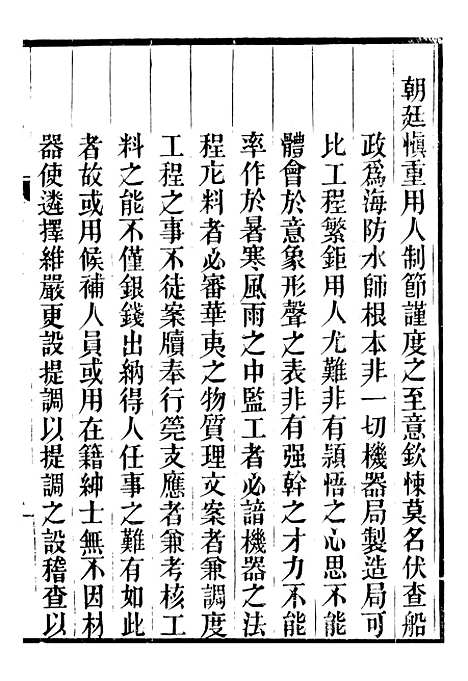 朝廷愼重用人制節謹度之至意欽悚莫名伏查船
政爲海防水師根本非一切機器局製造局可
比工程繁鉅用人尤難非有潁悟之心思不能
體會於意象形聲之表非有强幹之才力不能
率作於暑寒風雨之中監工者必諳機器之法
程庀料者必審華夷之物質理文案者兼調度
工程之事不徒案牘奉行筦支應者兼考核工
料之能不僅銀錢出納得人任事之難有如此
者故或用候補人員或用在籍紳士無不因材
器使遴擇維嚴更設提調以提調之設稽查以